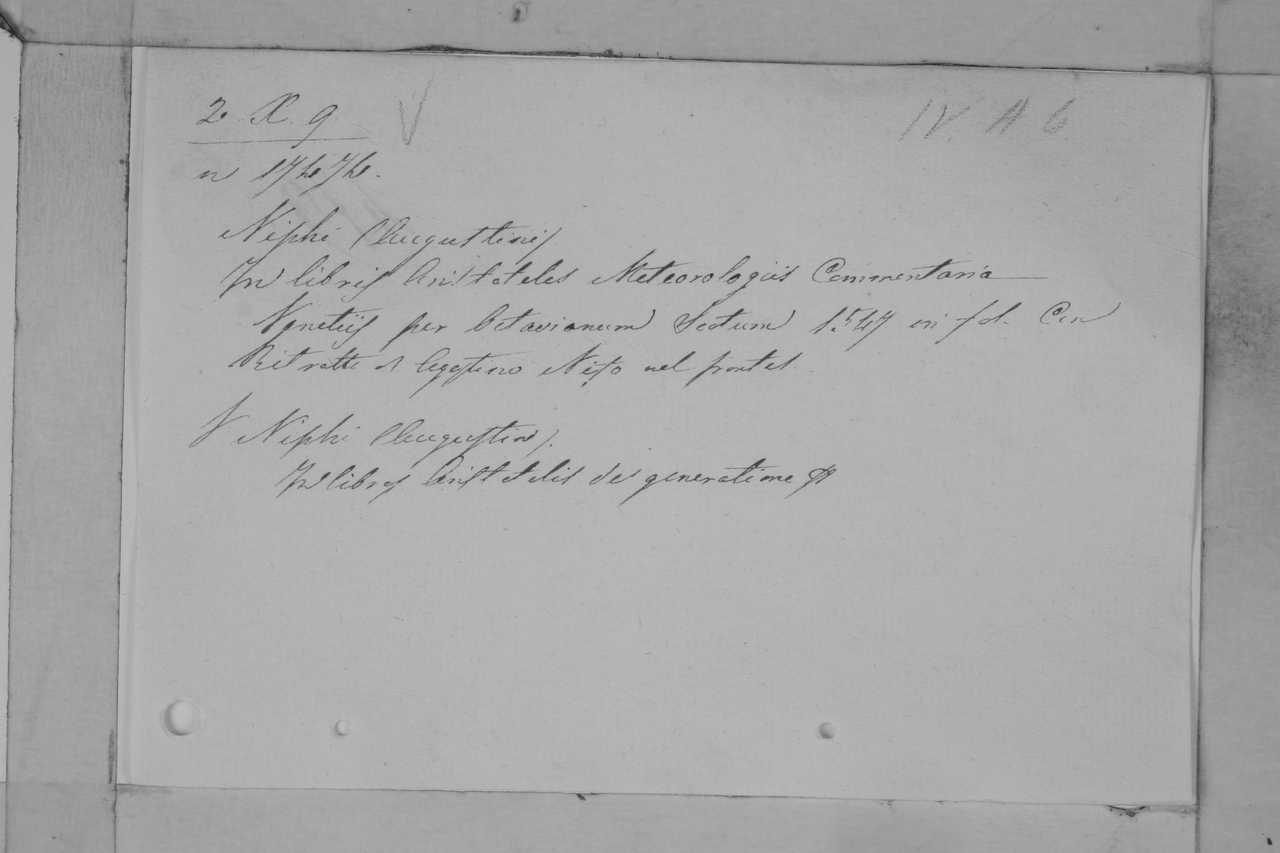 2. X. 9 V IV A 6
n 17474.
Niphi (Augustini)
In libris Aristotelis Meteorologicis Commentaria
Venetiis per Octavianum Scotum 1547 in fol. Con
Ritratto di Agostino Nifo nel frontes.
V Niphi (Augustini).
In libros Aristotelis de generatione